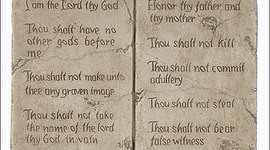 I am the Lord thy God
Thou shalt have no
other gods before
me
Thou shalt not make unto
thee any graven image
Thou shalt not take
the name of the lord
thy God in vain
Honor thy father and
thy mother
Thou shall not kill
Thou shall not commit
adultery
Thou shalt not steal
Thou shall not bear
false witness